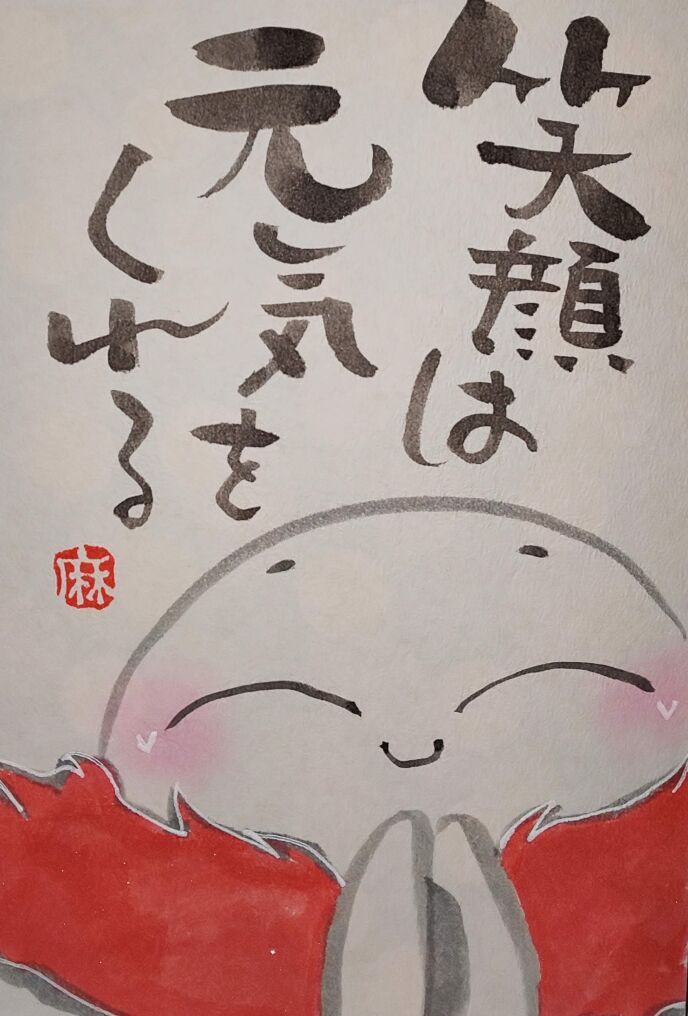 笑顔は
元気を
くれる
麻